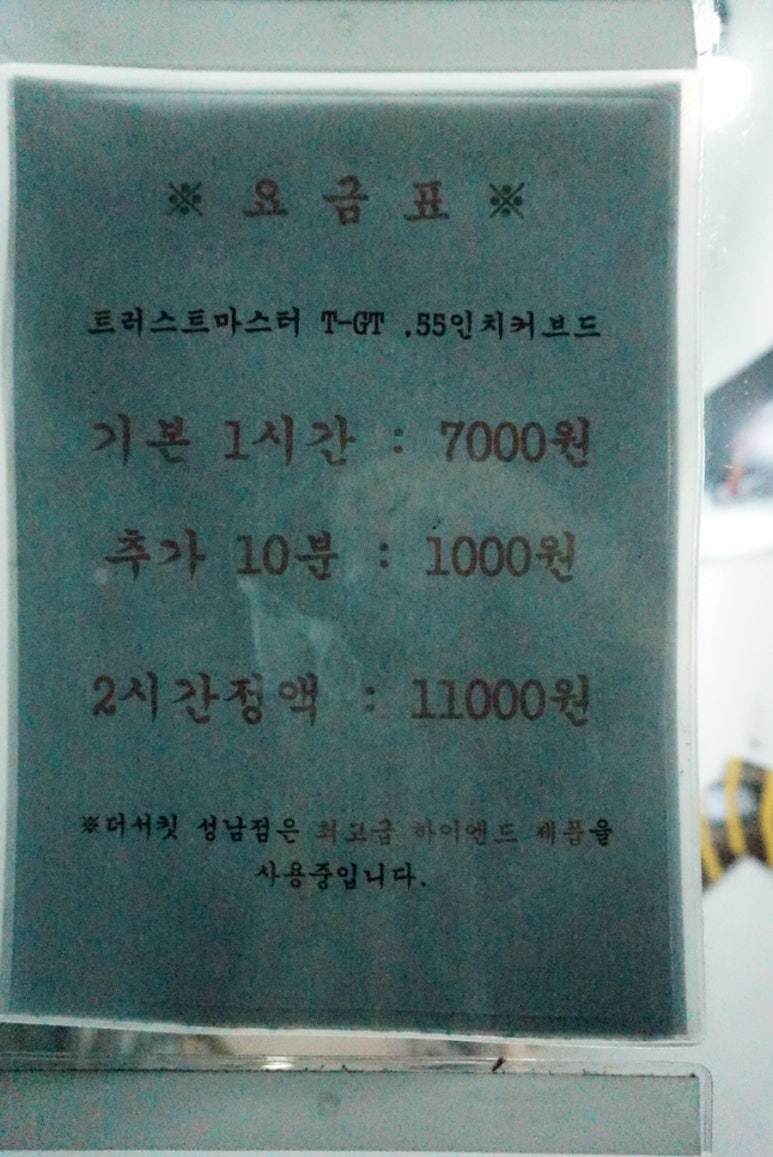 ※ 요 금 표 ※
트러스트마스터 T-GT .55인치커브드
기본 1시간 : 7000원
추가 10분 : 1000원
2시간정액 : 11000원
※더서킷 성남점은 최고급 하이엔드 제품을
사용중입니다.